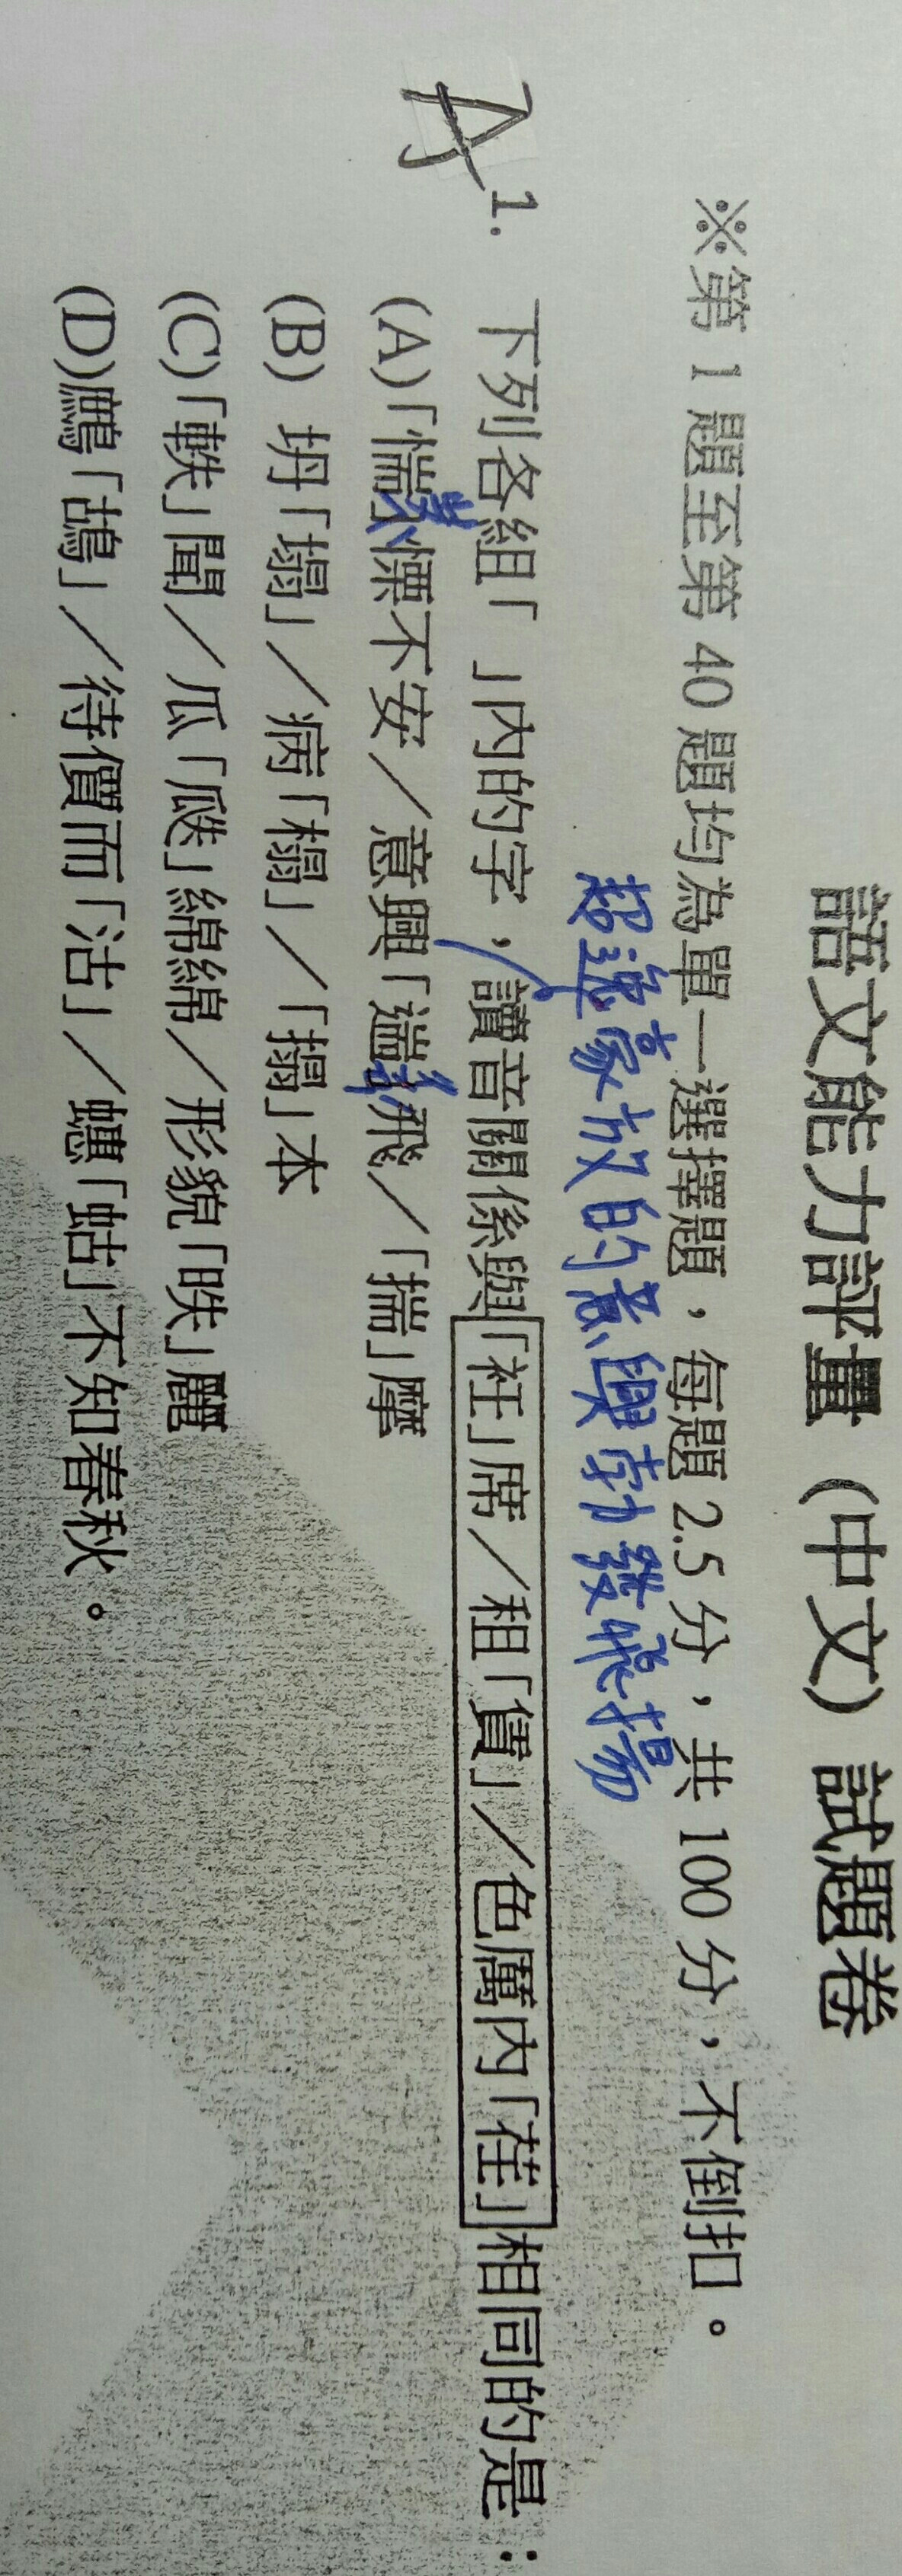 語文能力評量（中文）試題卷
※第 1 題至第 40 題均為單一選擇題，每題 2.5 分，共 100 分，不倒扣。
超逸豪放的意興勃發飛揚
A 1. 下列各組「 」內的字，讀音關係與「衽」席／租「賃」／色厲內「荏」相同的是：
(A)「惴」慄不安／意興「遄」飛／「揣」摩
(B) 坍「塌」／病「榻」／「搨」本
(C)「軼」聞／瓜「瓞」綿綿／形貌「昳」麗
(D)鷓「鴣」／待價而「沽」／蟪「蛄」不知春秋。